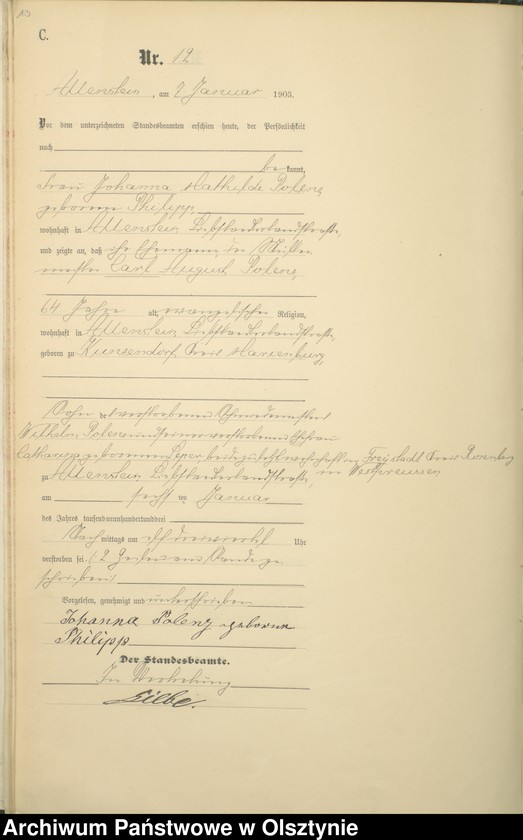 C.
Nr. 12
Allenstein, am 7 Januar 1903.
Vor dem unterzeichneten Standesbeamten erschien heute, der Persönlichkeit
nach
bekannt,
Frau Johanna Mathilde Polenz
geborene Philipp
wohnhaft in Allenstein
und zeigte an, daß ihr Ehemann, der
Carl August Polenz,
64 Jahre alt, evangelischer Religion,
wohnhaft in Allenstein
geboren zu Kunzendorf, Kreis Marienburg,
Sohn des verstorbenen
Wilhelm Polenz und seiner verstorbenen Ehefrau
geborenen beide zuletzt wohnhaft in Freystadt Kreis Rosenberg
in Westpreussen
zu Allenstein
am sechs ten Januar
des Jahres tausendneunhundertunddrei
Nachmittags um elf dreiviertel Uhr
verstorben sei. (2 Zeilen am Rande ge-
schrieben)
Vorgelesen, genehmigt und unterschrieben
Johanna Polenz geborene
Philipp
Der Standesbeamte.
In Vertretung
Archiwum Państwowe w Olsztynie